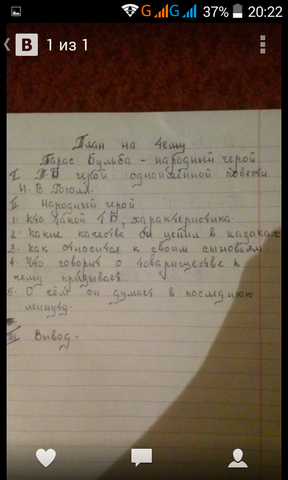 G G 37% 20:22
B 1 из 1
План на тему
Тарас Бульба - народный герой
I. Т.Б герой одноимённой повести
Н. В. Гоголя.
II Народный герой
1. Кто такой Т Б, характеристика.
2. какие качества он ценил в казаках
3. как относится к своим сыновьям.
4. Что говорит о товариществе к
чему призывает.
5. О чём он думает в последнюю
минуту.
III Вывод.